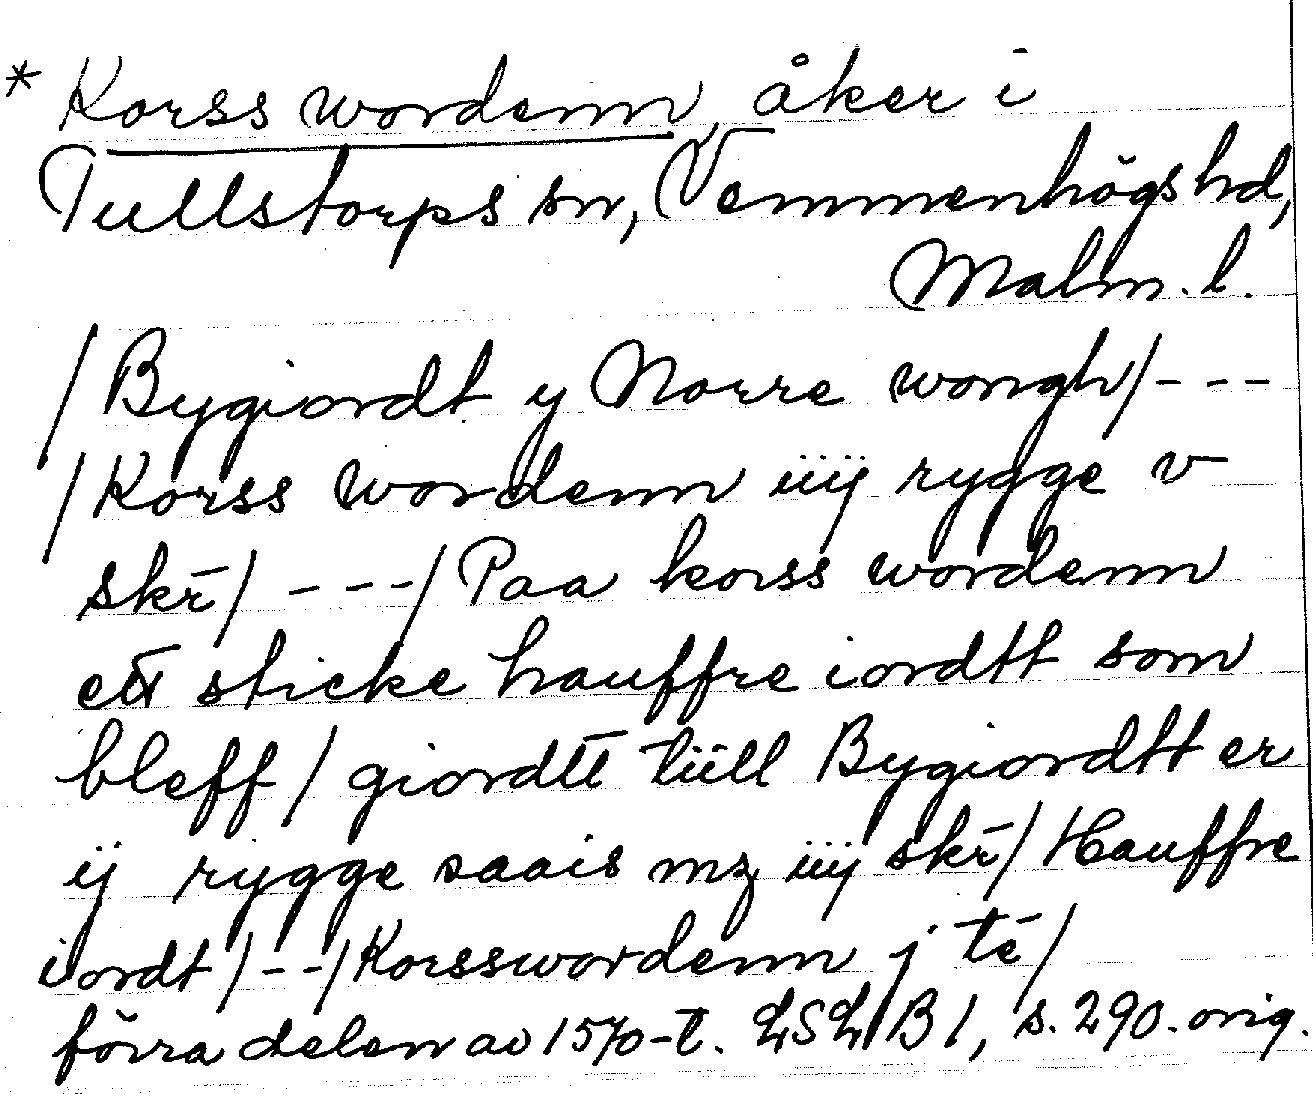 * Korss wordenn, åker i
Tullstorps sn, Vemmenhögs hd,
Malm. l.
/Bygiordt y Norre wongh/---
/Korss wordenn iiij rygge v
skr̄/ ---/ Paa korss wordenn
ett sticke hauffre iordtt som
bleff / giordtt tiill Bygiordtt er
ij rygge saais mz iiij skr̄/ Hauffre
iordt/--/Korsswordenn j te̅/
förra delen av 1570-t. LSL B 1, s. 290. orig.